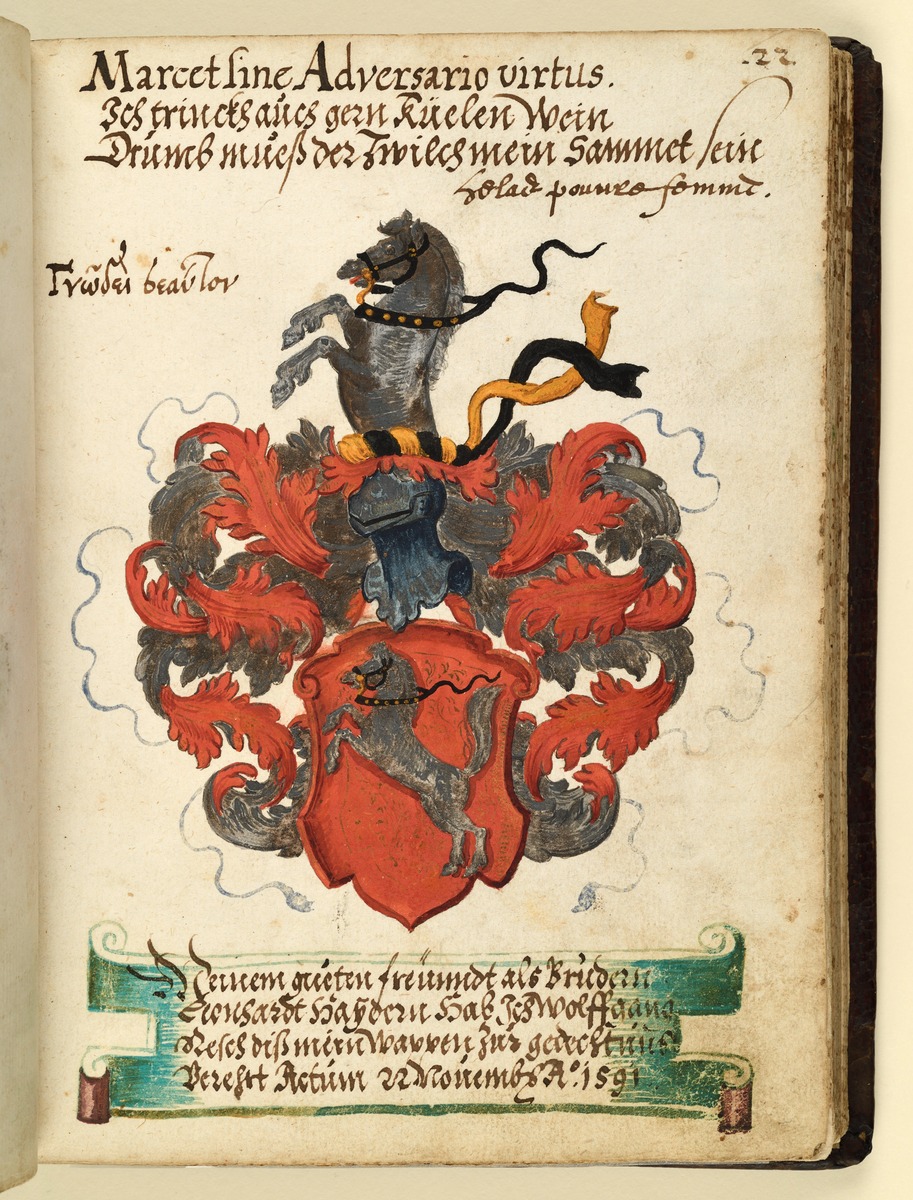 .22.
Marcet sine Adversario virtus.
Ich trinckh aŭch gern Küelen Wein
Drŭmb mŭeß der Zwilch mein Sammet sein
helas pouure femme.
Γνῶθι σεαυτον
Meinem gŭeten freŭndt als Brŭdern
Leonhardt Haydern Hab Ich Wolffgang
Resch diß mein Wappen Zŭr gedechtnŭs
Verehrt Actŭm 22 Novembs Aº. 1591